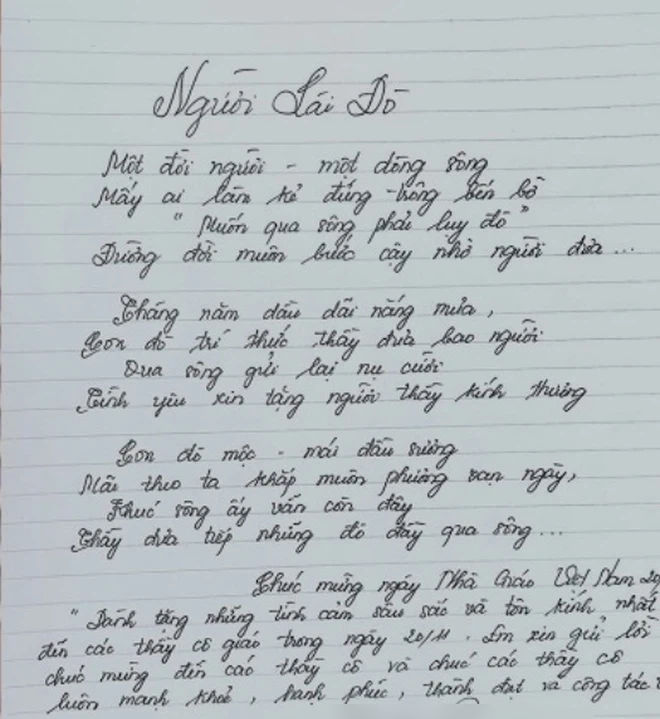 Người Lái Đò
Một đời người - một dòng sông
Mấy ai làm kẻ đứng trông bến bờ
"Muốn qua sông phải lụy đò"
Đường đời muôn bước cậy nhờ người đưa ...
Tháng năm dầu dãi nắng mưa,
Con đò trí thức thầy đưa bao người
Qua sông gửi lại nụ cười
Tình yêu xin tặng người thầy kính thương
Con đò mộc - mái đầu sương
Mãi theo ta khắp muôn phương vạn ngày,
Khúc sông ấy vẫn còn đây
Thầy đưa tiếp những đò đầy qua sông ...
Chúc mừng ngày Nhà Giáo Việt Nam 20
"Dành tặng những tình cảm sâu sắc và tôn kính nhất
đến các thầy cô giáo trong ngày 20/11. Em xin gửi lời
chúc mừng đến các thầy cô và chúc các thầy cô
luôn mạnh khoẻ, hạnh phúc, thành đạt và công tác